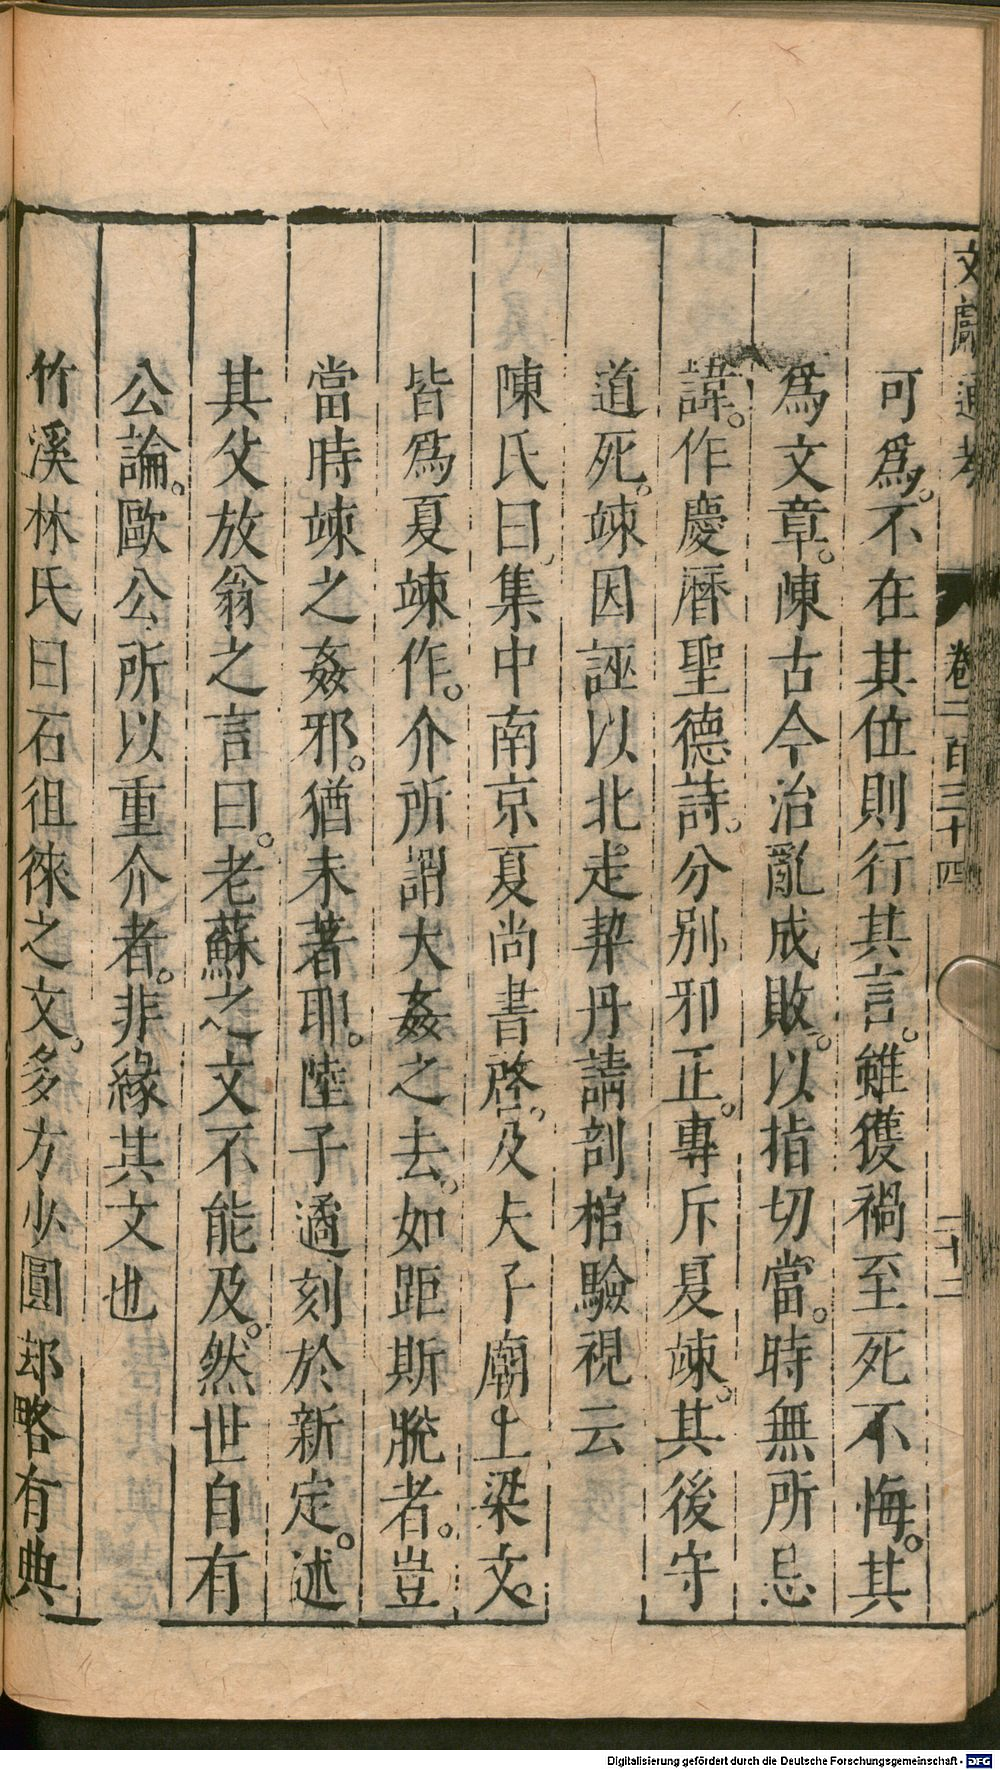 文獻通考 卷二百三十四 二十二
可爲。不在其位則行其言。雖獲禍至死不悔。其
爲文章。陳古今治亂成敗。以指切當。時無所忌
諱。作慶曆聖德詩。分別邪正。專斥夏竦。其後守
道死。竦因誣以北走契丹請剖棺驗視云
陳氏曰。集中南京夏尚書啓。及夫子廟上梁文。
皆爲夏竦作。介所謂大姦之去。如距斯脫者。豈
當時竦之姦邪。猶未著耶。陸子遹刻於新定。述
其父放翁之言曰。老蘇之文不能及。然世自有
公論。歐公所以重介者。非緣其文也
竹溪林氏曰石徂徠之文。多方少圓却略有典
Digitalisierung gefördert durch die Deutsche Forschungsgemeinschaft - DFG